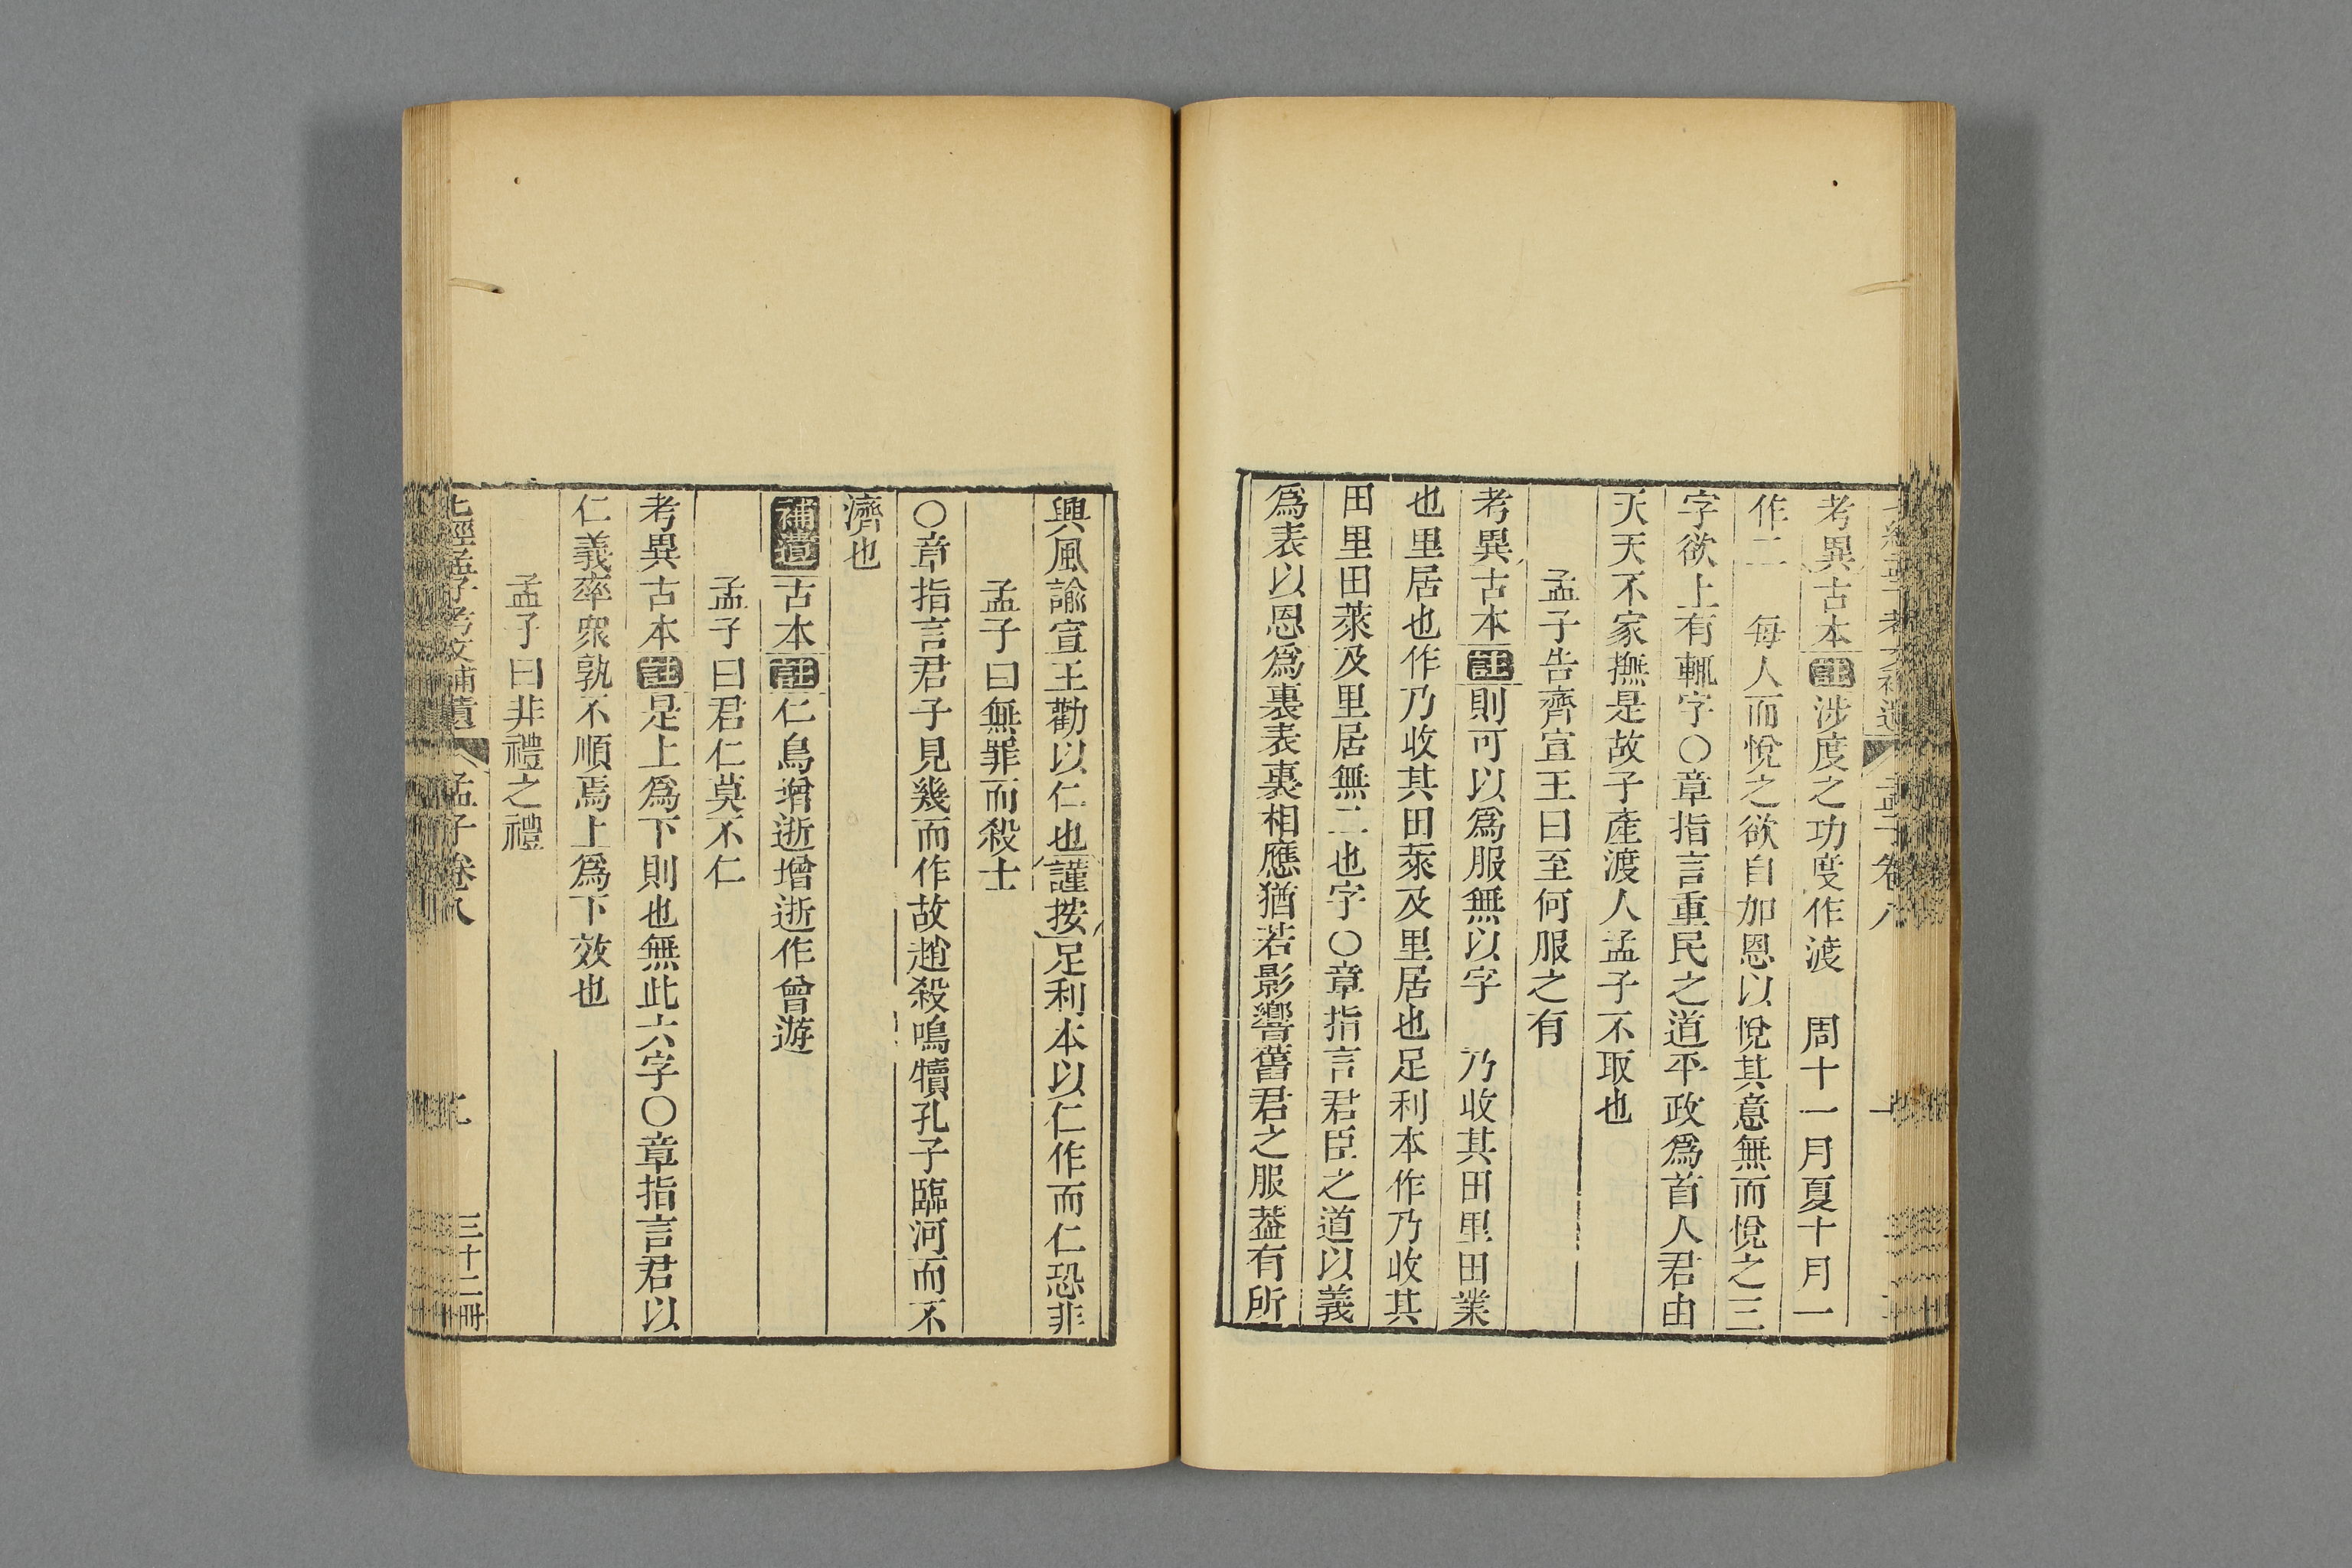 考異古本註涉度之功度作渡　周十一月夏十月一
作二　每人而悅之欲自加恩以悅其意無而悅之三
字欲上有輒字○章指言重民之道平政爲首人君由
天天不家撫是故子產渡人孟子不取也
孟子告齊宣王曰至何服之有
考異古本註則可以爲服無以字　乃收其田里田業
也里居也作乃收其田萊及里居也足利本作乃收其
田里田萊及里居無二也字○章指言君臣之道以義
爲表以恩爲裏表裏相應猶若影響舊君之服蓋有所
興風諭宣王勸以仁也謹按足利本以仁作而仁恐非
孟子曰無罪而殺士
○章指言君子見幾而作故趙殺鳴犢孔子臨河而不
濟也
補遺古本註仁鳥增逝增逝作曾遊
孟子曰君仁莫不仁
考異古本註是上爲下則也無此六字○章指言君以
仁義率衆孰不順焉上爲下效也
孟子曰非禮之禮
七經孟子考文補遺　孟子卷八　三十二冊